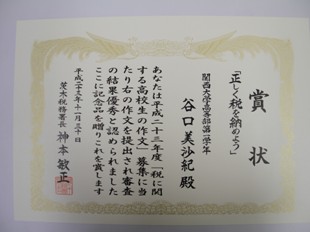 賞状
「正しく税を納めよう」
関西大学高等部第一学年
谷口美沙紀殿
あなたは平成二十三年度「税に関
する高校生の作文」募集に当
たり右の作文を提出され審査
の結果優秀と認められました
ここに記念品を贈りこれを賞します
平成二十三年十一月三十日
茨木税務署長 神本敏正